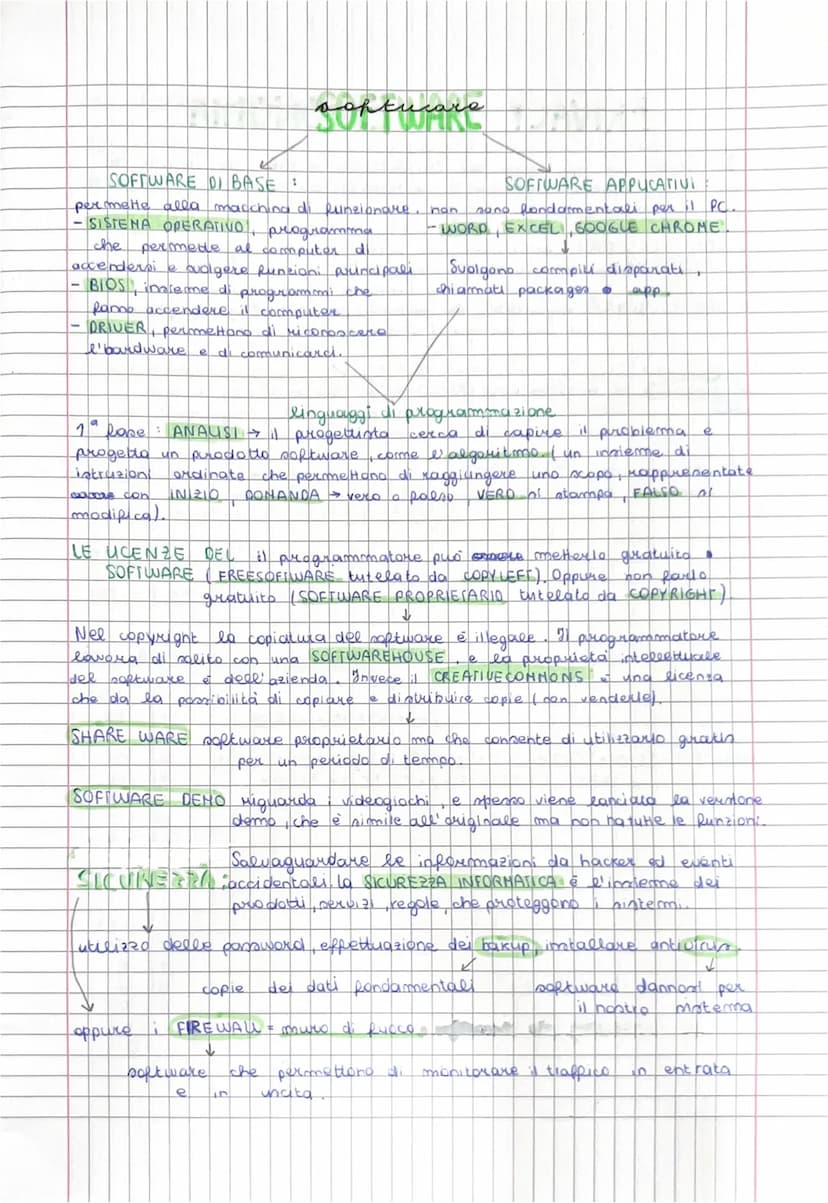 software
SOFTWARE
SOFTWARE DI BASE :
permette alla macchina di funzionare.
- SISTEMA OPERATIVO, programma
che permette al computer di
accendersi e svolgere funzioni principali
- BIOS, insieme di programmi che
fanno accendere il computer
- DRIVER, permettono di riconoscere
l'hardware e di comunicarci.
SOFTWARE APPLICATIVI :
non sono fondamentali per il PC.
- WORD, EXCEL, GOOGLE CHROME.
Svolgono compiti disparati,
chiamati packages o app
linguaggi di programmazione
1ª fase : ANALISI → il progettista cerca di capire il problema e
progetta un prodotto software, come l'algoritmo ( un insieme di
istruzioni ordinate che permettono di raggiungere uno scopo, rappresentate
con INIZIO, DOMANDA → vero o falso, VERO si stampa, FALSO si
modifica).
LE LICENZE DEL il programmatore può metterlo gratuito
SOFTWARE ( FREESOFTWARE tutelato da COPYLEFT). Oppure non farlo
gratuito (SOFTWARE PROPRIETARIO tutelato da COPYRIGHT)
Nel copyright la copiatura del software è illegale. Il programmatore
lavora di solito con una SOFTWAREHOUSE, e la proprietà intellettuale
del software è dell'azienda. Invece il CREATIVECOMMONS è una licenza
che da la possibilità di copiare e distribuire copie ( non venderle).
SHARE WARE software proprietario ma che consente di utilizzarlo gratis
per un periodo di tempo.
SOFTWARE DEMO riguarda i videogiochi, e spesso viene lanciata la versione
demo, che è simile all'originale ma non ha tutte le funzioni.
Salvaguardare le informazioni da hacker ed eventi
SICUREZZA : accidentali. la SICUREZZA INFORMATICA è l'insieme dei
prodotti, servizi, regole, che proteggono i sistemi.
utilizzo delle password, effettuazione dei bakup, installare antivirus.
copie dei dati fondamentali
software dannosi per
il nostro sistema
oppure i FIREWALL = muro di fuoco
software che permettono di monitorare il traffico in entrata
e in uscita.